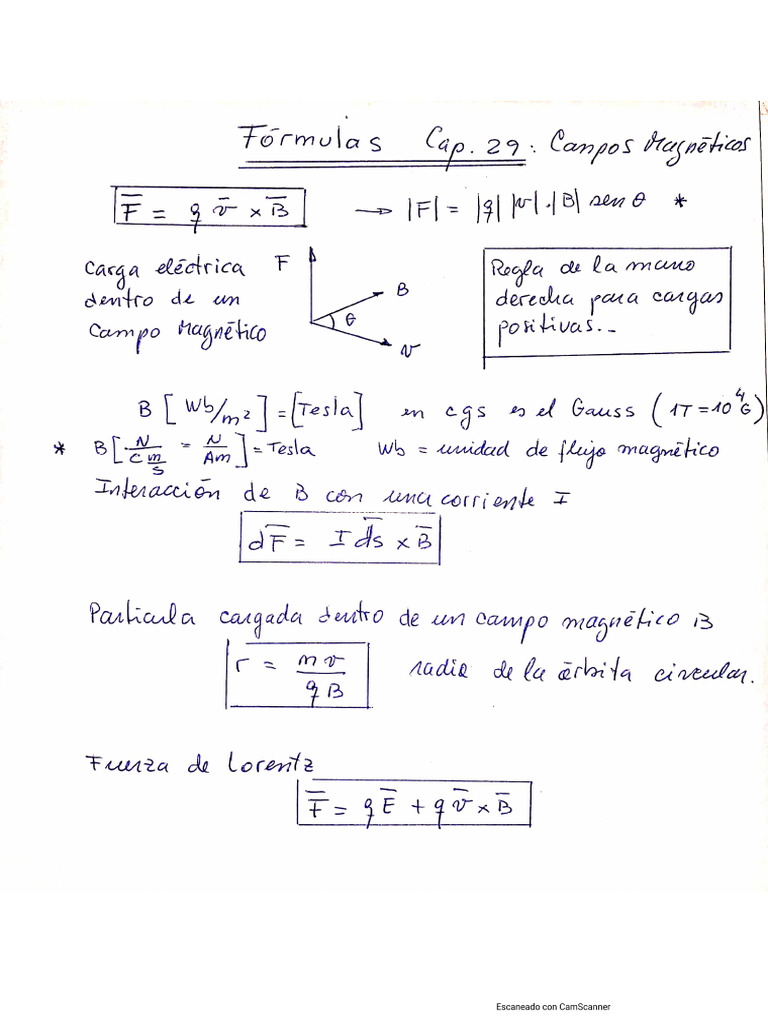 Fórmulas Cap. 29: Campos Magnéticos
F̅ = q v̅ × B̅ → |F| = |q| |v|.|B| sen θ *
Carga eléctrica
dentro de un
Campo Magnético
F
B
θ
v
Regla de la mano
derecha para cargas
positivas..
B [Wb/m²] = [Tesla] en cgs es el Gauss (1T=10⁴G)
* B [N/(C m/s) = N/Am] = Tesla Wb = unidad de flujo magnético
Interacción de B con una corriente I
dF̅ = I ds̅ × B̅
Particula cargada dentro de un campo magnético B
r = mv/qB radio de la órbita circular.
Fuerza de Lorentz
F̅ = qE̅ + qv̅ × B̅
Escaneado con CamScanner